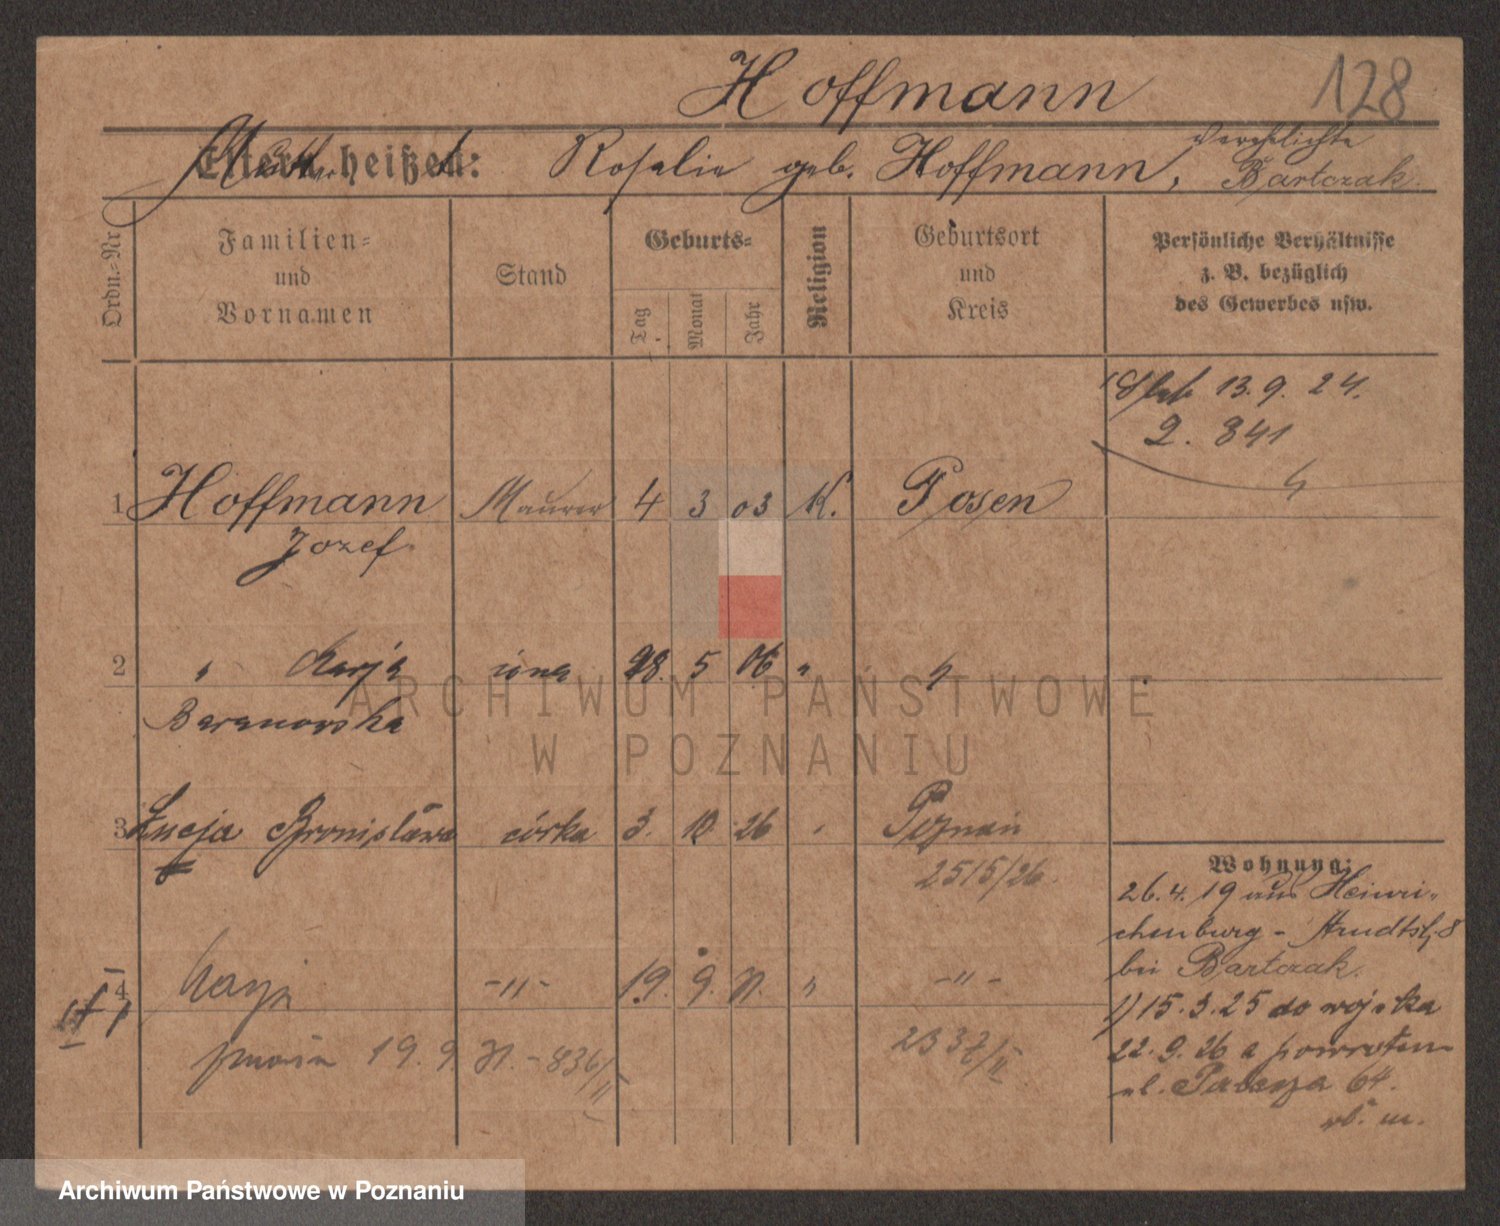 Hoffmann 128
Eltern heißen: Rosalie geb. Hoffmann, verehelichte
Bartczak.
Ordn.-Nr.
Familien-
und
Vornamen
Stand
Geburts-
Tag
Monat
Jahr
Religion
Geburtsort
und
Kreis
Persönliche Verhältnisse
z. B. bezüglich
des Gewerbes usw.
13. 9. 24.
2. 841
1 Hoffmann Maurer 4 3 03 K. Posen
Jozef
2 " Marja żona 28. 5 06 " "
Baranowska
3 Łucja Bronisława córka 3. 12 26 Poznań
2515/26.
4 -"- 19. 9. " -"-
19. 9. 836/II
Wohnung:
26. 4. 19 aus Heinri-
chenburg - Arndtstr. 8
bei Bartczak.
1) 15. 3. 25 do wojska
22. 9. 26 z powrotem
ul. 64.
ARCHIWUM PAŃSTWOWE
W POZNANIU
Archiwum Państwowe w Poznaniu